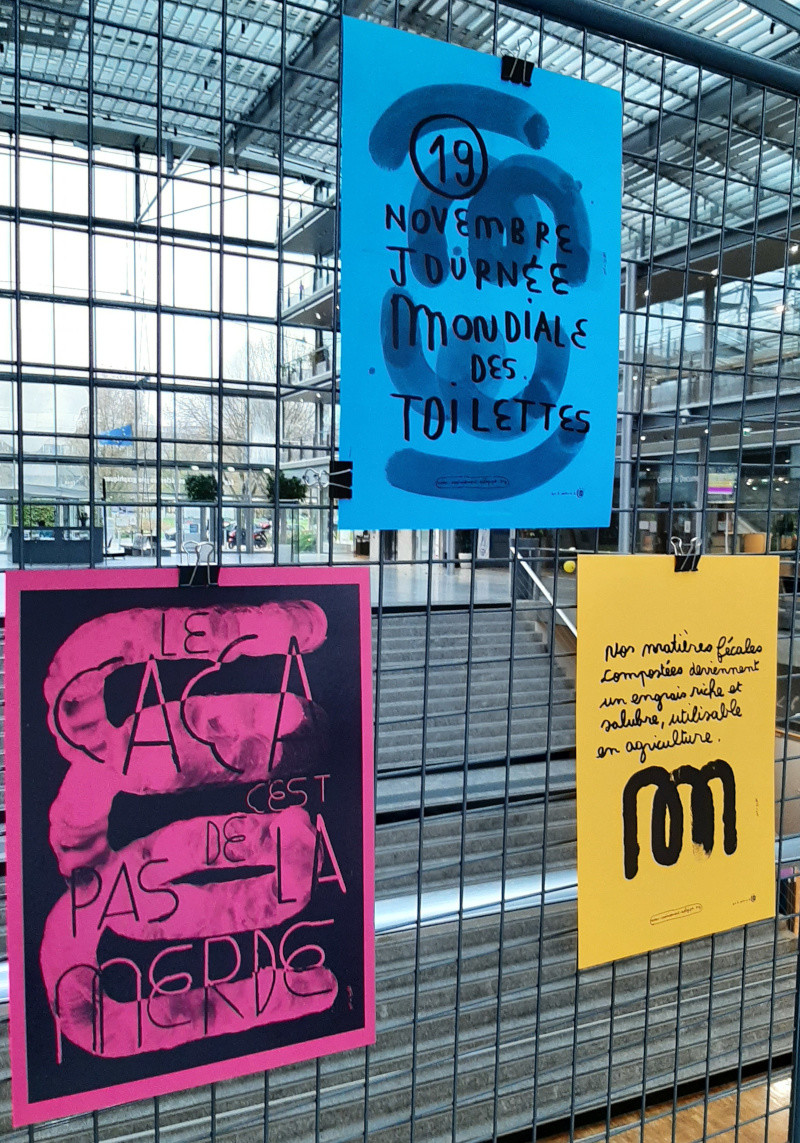 19
NOVEMBRE
JOURNÉE
MONDIALE
DES
TOILETTES
LE
CACA
C'EST
DE
PAS LA
MERDE
Nos matières fécales
compostées deviennent
un engrais riche et
salubre, utilisable
en agriculture.
m